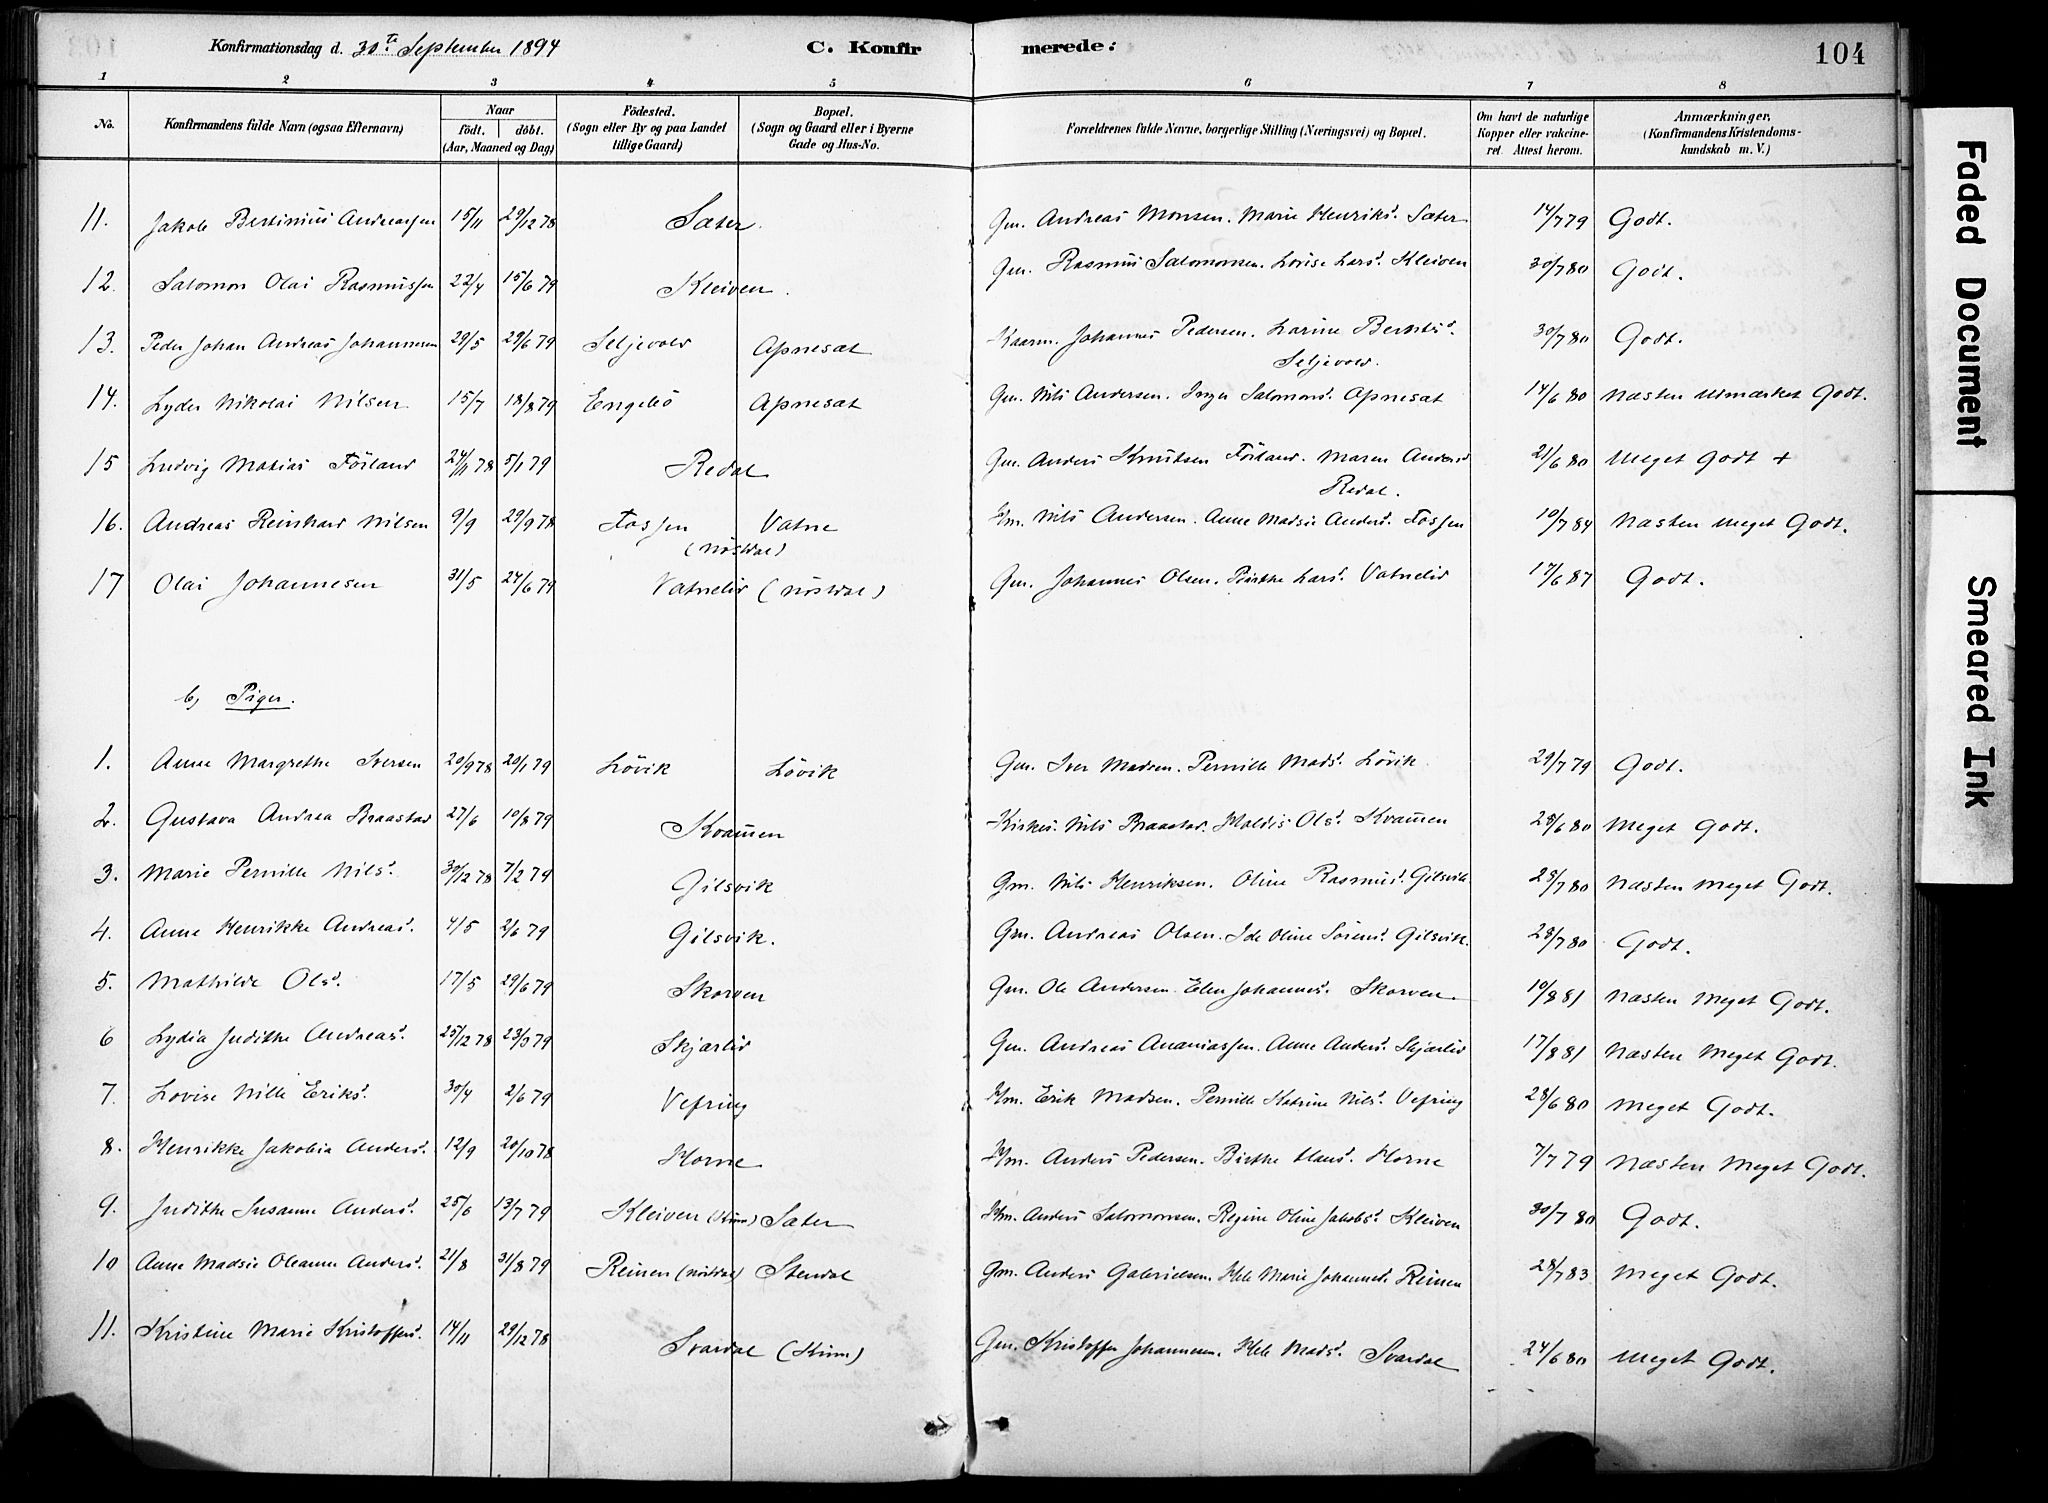 Konfirmationsdag d. 30te September 1894 C. Konfirmerede: 104
1 2 3 4 5 6 7 8
No. Konfirmandens fulde Navn (ogsaa Efternavn) Naar födt. döbt. (Aar, Maaned og Dag) Födested. (Sogn eller By og paa Landet tillige Gaard) Bopæl. (Sogn og Gaard eller i Byerne Gade og Hus-No. Forældrenes fulde Navne, borgerlige Stilling (Næringsvei) og Bopæl. Om havt de naturlige Kopper eller vakcineret. Attest herom. Anmærkninger, (Konfirmandens Kristendomskundskab m. V.)
11. Jakob Bertinius Andreassen 15/11 29/12 78 Sæter. Gm. Andreas Monsen. Marie Henriksd. Sæter 14/7 79 Godt.
12. Salomon Olai Rasmussen 22/4 15/6 79 Kleiven. Gm. Rasmus Salomonsen. Lovise Larsd. Kleiven 30/7 80 Godt.
13. Peder Johan Andreas Johannesen 29/5 29/6 79 Seljevold Apnesæt Kaarm. Johannes Pedersen. Larine Berntsd. Seljevold. 30/7 80 Godt.
14. Lyder Nikolai Nilsen 15/7 18/8 79 Engebö Apnesæt Gm. Nils Andersen. Inger Salomonsd. Apnesæt 14/6 80 Næsten udmærket Godt.
15 Ludvig Matias Förland 24/11 78 5/1 79 Redal Gm. Anders Knutsen Förland. Maren Andersd Redal. 21/6 80 Meget Godt +
16. Andreas Reinhard Nilsen 9/9 29/9 78 Fossen Vatne (Nöstdal) Hm. Nils Andersen. Anne Madsie Andersd. Fossen 10/7 84 Næsten Meget Godt.
17 Olai Johannesen 31/5 24/6 79 Vatnelid (Nöstdal) Gm. Johannes Olsen. Birthe Larsd. Vatnelid 17/6 87 Godt.
b, Piger.
1. Anne Margrethe Iversen 20/9 78 20/1 79 Lövik Lövik Gm. Iver Madsen. Pernille Madsd. Lövik 29/7 79 Godt.
2. Gustava Andrea Braastad 27/6 10/8 79 Kvammen Kirkes. Nils Braastad. Holdis Olsd. Kvammen 28/6 80 Meget Godt.
3. Marie Pernille Nilsd. 30/12 78 7/2 79 Gilsvik Gm. Nils Henriksen. Oline Rasmusd. Gilsvik 28/7 80 Næsten Meget Godt.
4. Anne Henrikke Andreasd. 4/5 2/6 79 Gilsvik. Gm. Andreas Olsen. Ide Oline Sörensd. Gilsvik. 28/7 80 Godt.
5. Mathilde Olsd. 17/5 29/6 79 Skorven Gm. Ole Andersen. Elen Johannesd. Skorven 10/8 81 Næsten Meget Godt.
6 Lydia Judithe Andreasd. 25/12 78 23/3 79 Skjærlid Gm. Andreas Ananiassen. Anne Andersd. Skjærlid 17/8 81 Næsten Meget Godt.
7. Lovise Nille Eriksd. 30/4 2/6 79 Vefring Hm. Erik Madsen. Pernille Katrine Nilsd. Vefring 28/6 80 Meget Godt.
8. Henrikke Jakobia Andersd. 12/9 20/10 78 Horne Hm. Anders Pedersen. Birthe Hansd. Horne 7/7 79 Næsten Meget Godt.
9. Judithe Susanne Andersd. 25/6 13/7 79 Kleiven (Kinn) Sæter Hm. Anders Salomonsen. Regine Oline Jakobsd. Kleiven 30/7 80 Godt.
10 Anne Madsie Oleanne Andersd. 21/8 31/8 79 Reinen (Nöstdal) Stendal Gm. Anders Gabrielsen. Hele Marie Johannesd. Reinen 28/7 83 Meget Godt.
11. Kristine Marie Kristoffersd. 14/11 29/12 78 Svardal (Kinn) Gm. Kristoffer Johannesen. Hele Madsd. Svardal 24/6 80 Meget Godt.
Faded Document
Smeared Ink